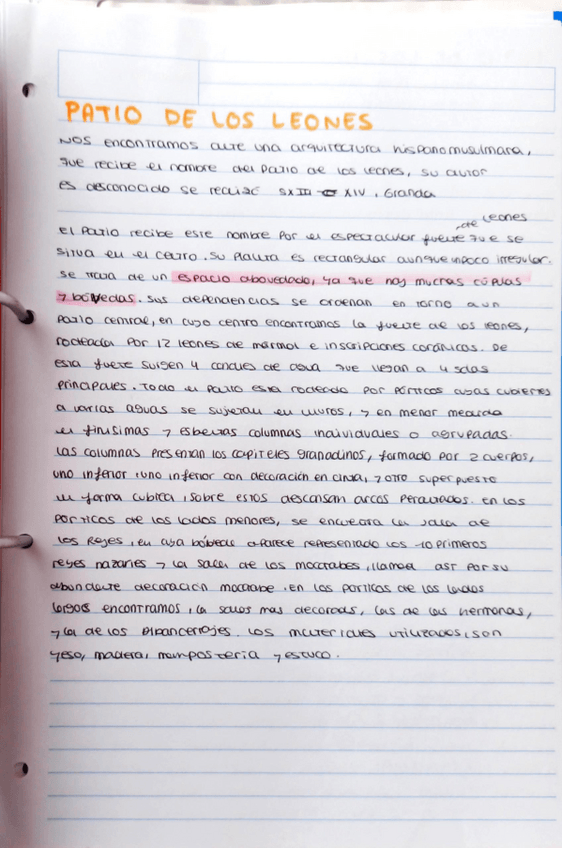 PATIO DE LOS LEONES
NOS encontramos ante una arquitectura hispanomusulmana,
que recibe el nombre del Patio de los leones, su autor
es desconocido se realizó SXIII - XIV, Granada
de Leones
El Patio recibe este nombre por el espectacular fuente que se
situa en el centro. Su planta es rectangular aunque un poco irregular.
Se trata de un espacio abovedado, ya que hay muchas cúpulas
y bóvedas. Sus dependencias se ordenan en torno a un
patio central, en cuyo centro encontramos la fuente de los leones,
rodeada por 12 leones de marmol e inscripciones coránicas. De
esta fuente surgen 4 canales de agua que llegan a 4 salas
principales. Todo el patio esta rodeado por pórticos cuyas cubiertas
a varias aguas se sujetan en muros, y en menor medida
en finisimas y esbeltas columnas individuales o agrupadas.
Las columnas presentan los capiteles granadinos, formado por 2 cuerpos,
uno inferior uno inferior con decoración en cinta, y otro superpuesto
en forma cubica, sobre estos descansan arcos peraltados. en los
pórticos de los lados menores, se encuentra la sala de
los Reyes, en cuya bóbeda aparece representado los 10 primeros
reyes nazaries y la sala de los mocarabes, llamada asi por su
abundante decoración mocarabe. en los porticos de los lados
largos encontramos, la salas mas decoradas, las de las hermanas,
y la de los Abancerrajes. los materiales utilizados, son
yeso, madera, mamposteria y estuco.